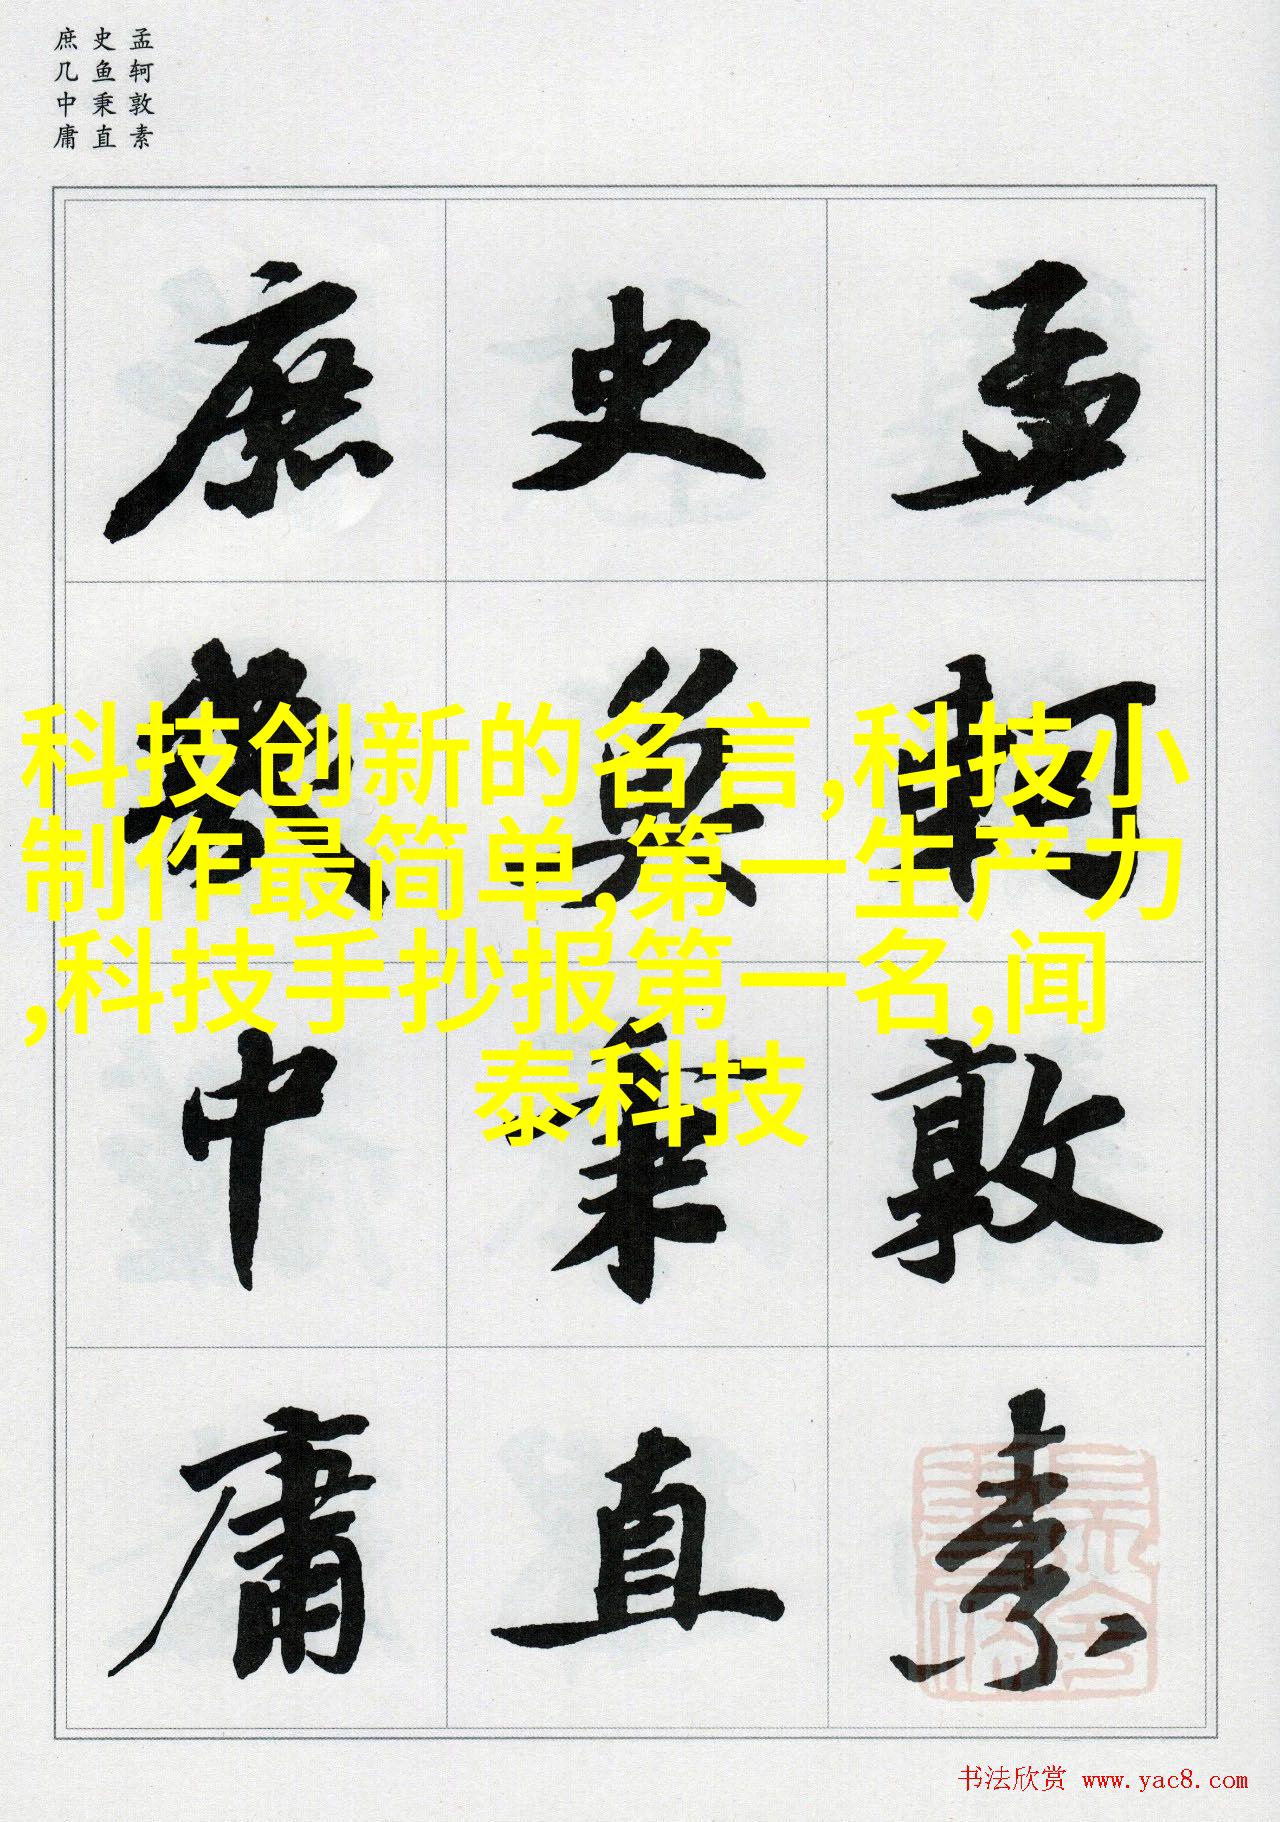 孟轲敦素
史鱼秉直
庶几中庸
孟軻敦素
史魚秉直
庶幾中庸
科技创新的名言,科技小
制作最简单,第一生产力
,科技手抄报第一名,闻
泰科技
书法欣赏 www.yac8.com